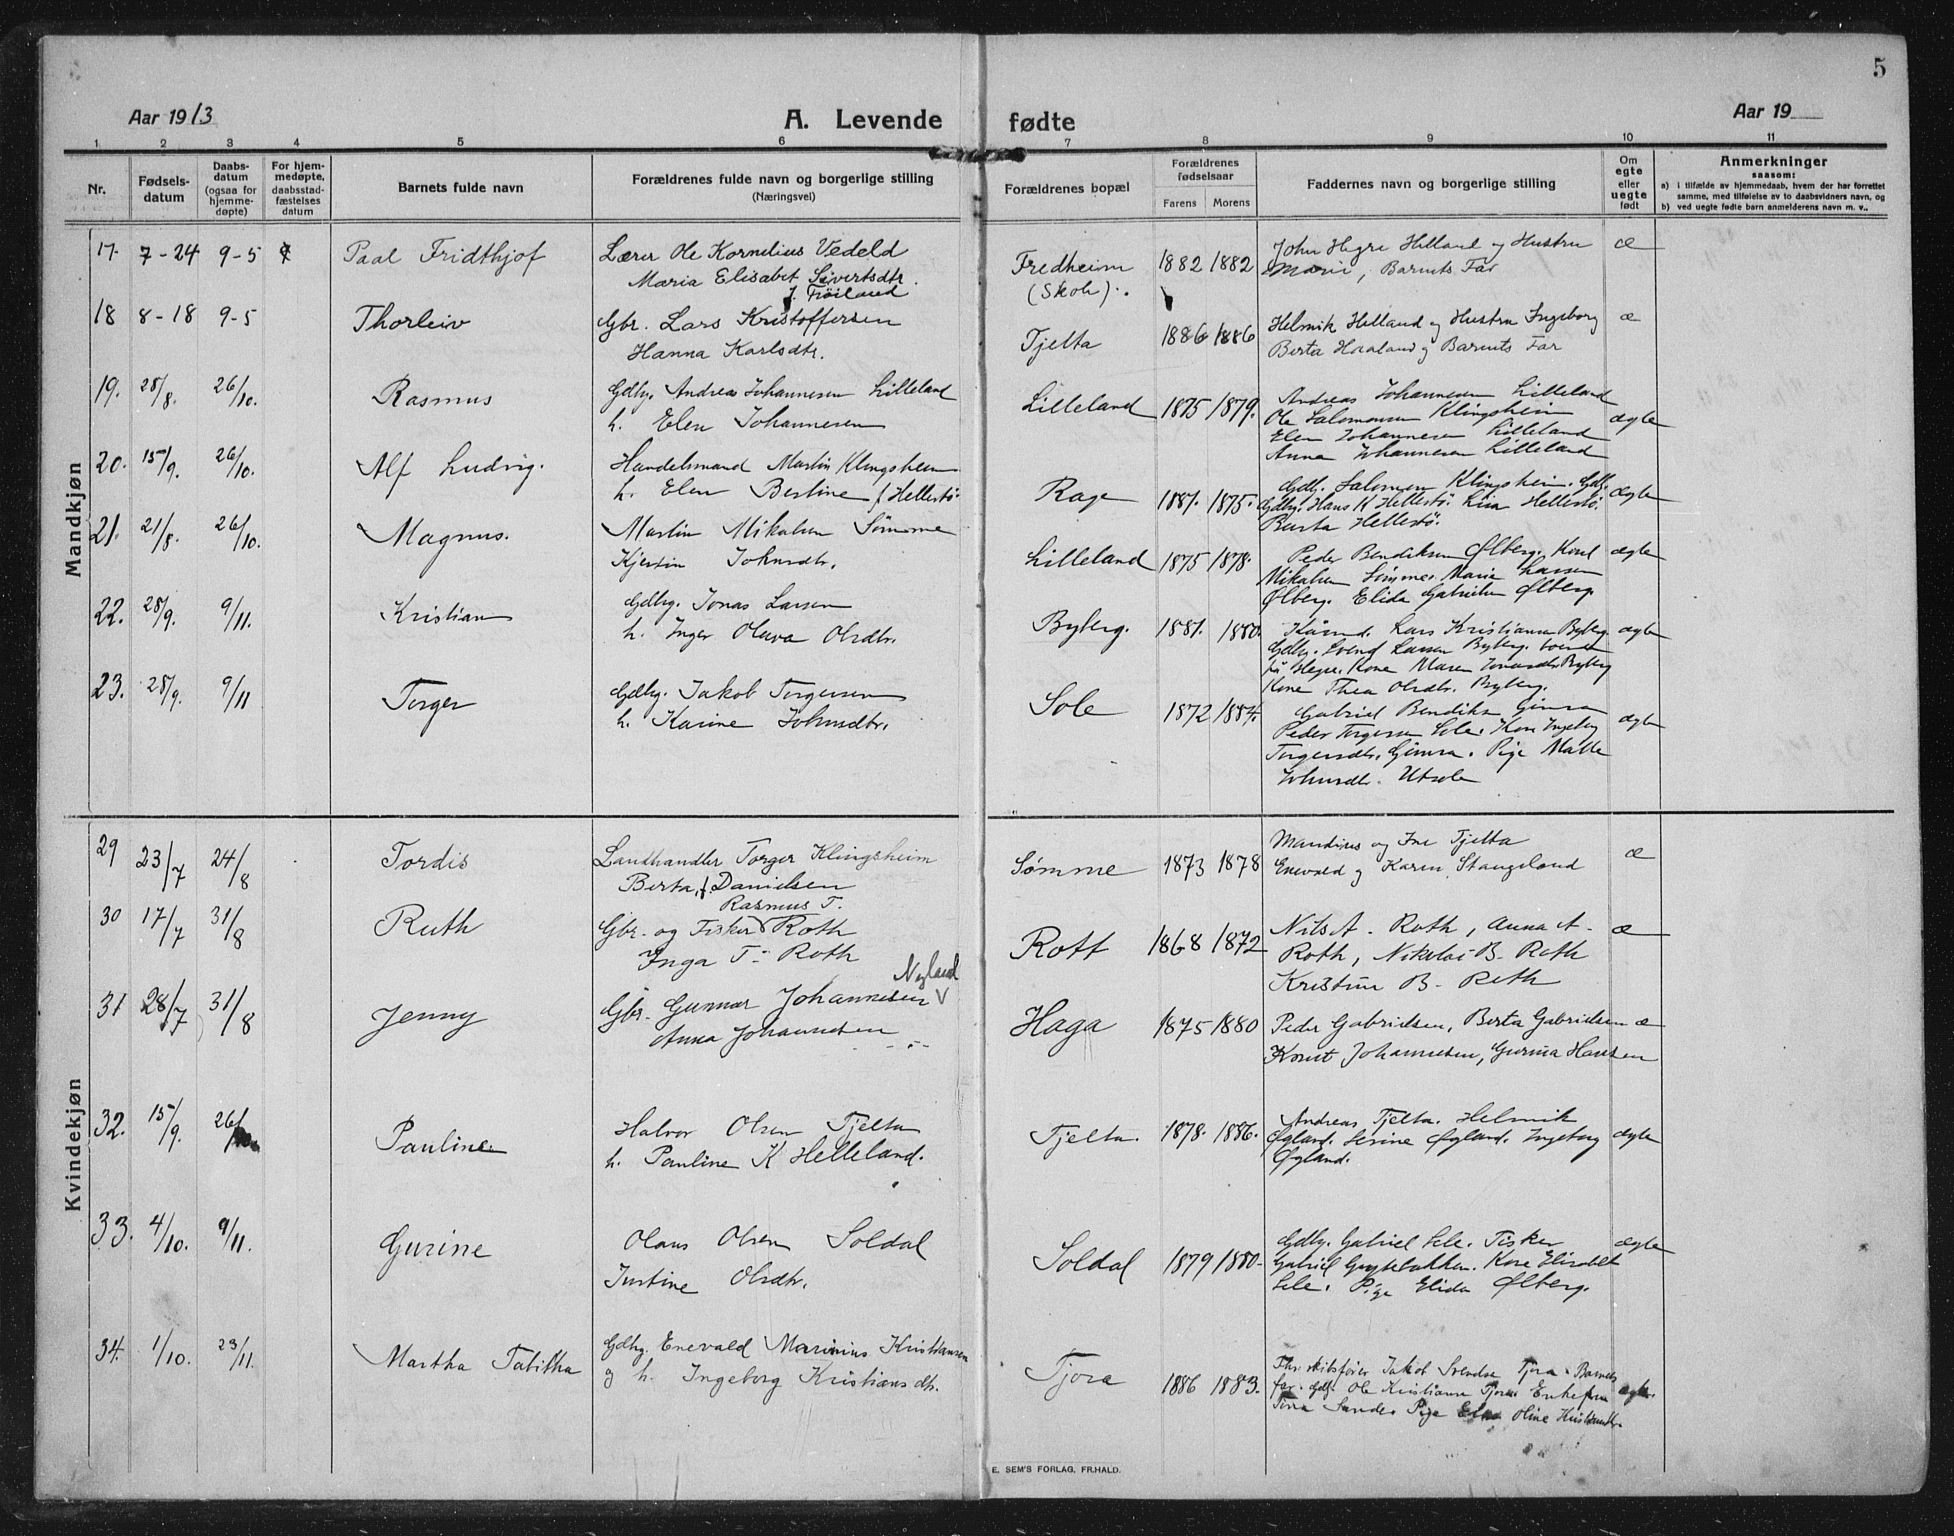 5
Aar 1913
A. Levende fødte
Aar 19
1 2 3 4 5 6 7 8 9 10 11
Nr.
Fødsels-
datum
Daabs-
datum
(ogsaa for
hjemme-
døpte)
For hjem-
medøpte,
daabsstad-
fæstelses
datum
Barnets fulde navn
Forældrenes fulde navn og borgerlige stilling
(Næringsvei)
Forældrenes bopæl
Forældrenes
fødselsaar
Farens Morens
Faddernes navn og borgerlige stilling
Om
egte
eller
uegte
født
Anmerkninger
saasom:
a) i tilfælde av hjemmedaab, hvem der har forrettet
samme, med tilføielse av to daabsvidners navn, og
b) ved uegte fødte barn anmelderens navn m. v..
Mandkjøn
17. 7-24 9-5 Paal Fridthjof
Lærer Ole Kornelius Vedeld
Maria Elisabet Sivertsdtr.
f. Frøiland
Fredheim
(Skole).
1882 1882
John Hegre Helland og Hustru
Marie, Barnets Far
æ
18 8-18 9-5 Thorleiv
Gbr. Lars Kristoffersen
Hanna Karlsdtr.
Tjelta
1886 1886
Helmik Helland og Hustru Ingeborg
Berta Haaland og Barnets Far
æ
19. 28/8. 26/10. Rasmus
Gdbg. Andreas Johannesen Lilleland
h. Elen Johannesen
Lilleland
1875 1879.
Andreas Johannesen Lilleland
Ole Salomonsen Klingsheim
Elen Johannesen Lilleland
Anna Johannesen Lilleland
ægte
20. 15/9. 26/10. Alf Ludvig.
Handelsmand Martin Klingsheim
h. Elen Bertine f. Hellestø.
Rage
1881. 1875.
Gdbg. Salomon Klingsheim. Gdbg.
Gdbg. Hans K Hellestø. Lisa Hellestø.
Berta Hellestø.
ægte
21. 21/8. 26/10. Magnus.
Martin Mikalsen Sømme
Kjerstin Johnsdtr.
Lilleland
1875 1878.
Peder Bendiksen Ølberg. Karl
Mikalsen Sømme. Marie Larsen
Ølberg. Elida Gabrielsen Ølberg.
ægte
22. 28/9. 9/11. Kristian
Gdbg. Jonas Larsen
h. Inger Oluva Olsdtr.
Byberg.
1881. 1880.
Kårmd. Lars Kristiansen Byberg.
Gdbg. Svend Larsen Byberg.
på Hegre. Kone Maren Jonasdtr. Byberg
Kone Thea Olsdtr. Byberg.
ægte
23. 28/9. 9/11 Torger
Gdbg. Jakob Torgersen
h. Karine Johnsdtr.
Sole
1872 1884.
Gabriel Bendiksen Gimra
Peder Torgersen Sole. Kone Ingeborg
Torgersdtr. Gimra. Pige Malle
Johnsdtr. Utsole
ægte
Kvindekjøn
29 23/7 24/8 Tordis
Landhandler Torger Klingsheim
Berta, f. Danielsen
Sømme
1873 1878
Mandius og Ine Tjelta
Enevald og Karen Stangeland
æ
30 17/7 31/8 Ruth
Rasmus T.
Gbr. og Fisker Roth
Inga T. Roth
Rott
1868 1872
Nils A. Roth, Anna A.
Roth, Nikolai B. Roth
Kristine B. Roth
æ
31 28/7 31/8 Jenny
Nyland
Gbr. Gunnar Johannesen
Anna Johannesen
Haga
1875 1880
Peder Gabrielsen, Berta Gabrielsen
Knut Johannesen, Gurina Hansen
æ
32. 15/9. 26/ Pauline
Halvor Olsen Tjelta
h. Pauline K Helleland.
Tjelta.
1878. 1886.
Andreas Tjelta. Helmik
Øgland. Serine Øgland. Ingeborg
Øgland.
ægte
33. 4/10. 9/11. Gurine
Olaus Olsen Soldal
Justine Olsdtr.
Soldal
1879 1880.
Gdbg. Gabriel Sele. Fisker
Gabriel Grytebakken. Kone Elisabet
Sele. Pige Elida Ølberg.
ægte
34. 1/10. 23/11. Martha Tabitha
Gdbg. Enevald Marinius Kristiansen
og h. Ingeborg Kristiansdtr.
Tjora
1886 1883.
Fhv. skibsfører Jakob Svendsen Tjora. Barnets
far. Gdbg. Ole Kristiansen Tjora. Enkefru
Tina Sande. Pige Oline Kristiansdtr.
ægte.
E. SEM'S FORLAG, FR.HALD.